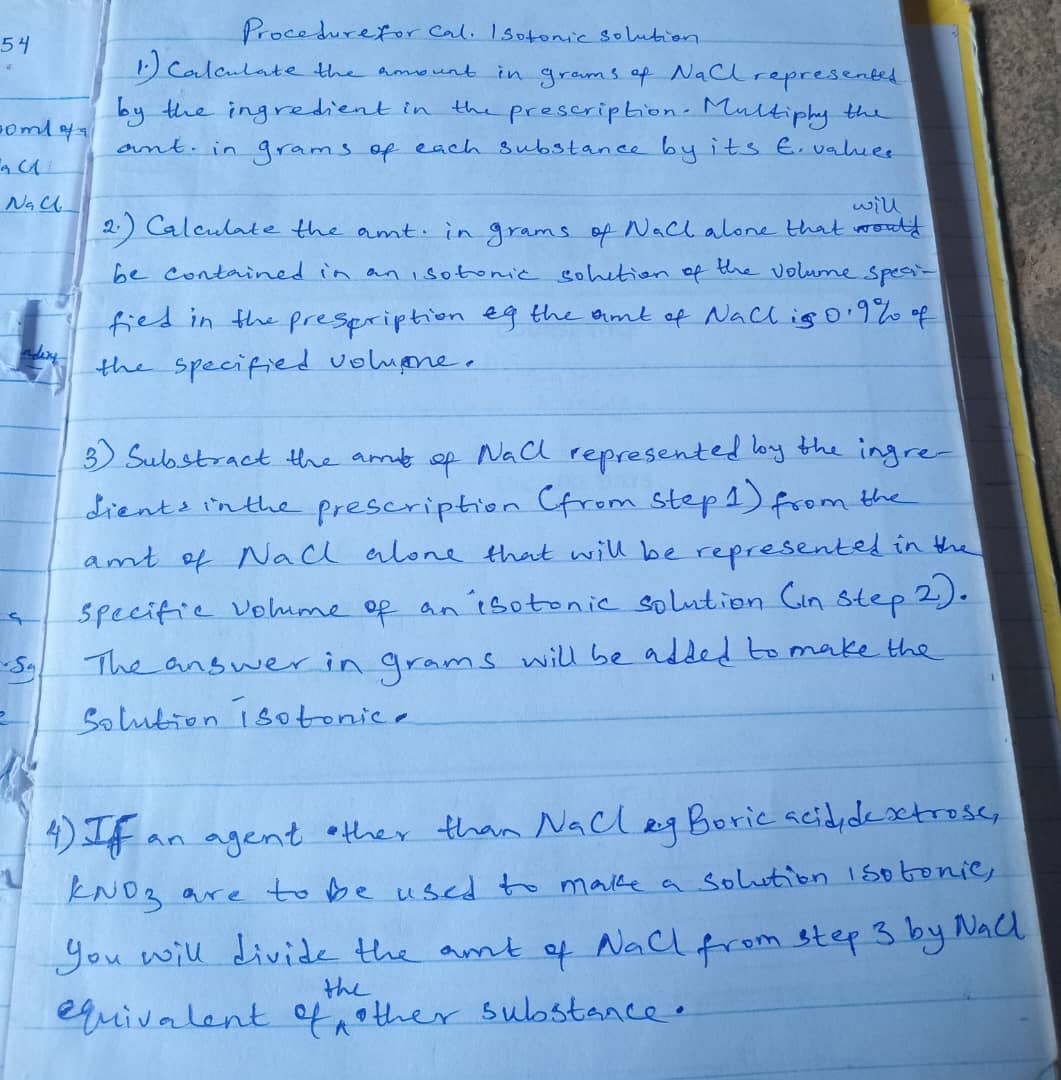 54
Procedure for Cal. Isotonic solution
1.) Calculate the amount in grams of NaCl represented
by the ingredient in the prescription. Multiphy the
amt. in grams of each substance by its E. values
NaCl
2.) Calculate the amt. in grams of NaCl alone that will
be contained in an isotonic solution of the volume spesi-
fied in the prescription eg the amt of NaCl is 0.9% of
the specified volume.
3) Substract the amt of NaCl represented by the ingre-
dients in the prescription (from step 1) from the
amt of NaCl alone that will be represented in the
specific volume of an isotonic solution (in step 2).
The answer in grams will be added to make the
solution isotonic.
4) If an agent other than NaCl eg Boric acid, dextrose,
KNO3 are to be used to make a solution isotonic,
you will divide the amt of NaCl from step 3 by NaCl
equivalent of the other substance.